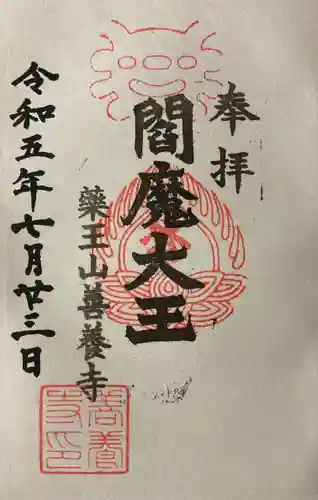 奉拝
閻魔大王
藥王山善養寺
令和五年七月廿三日